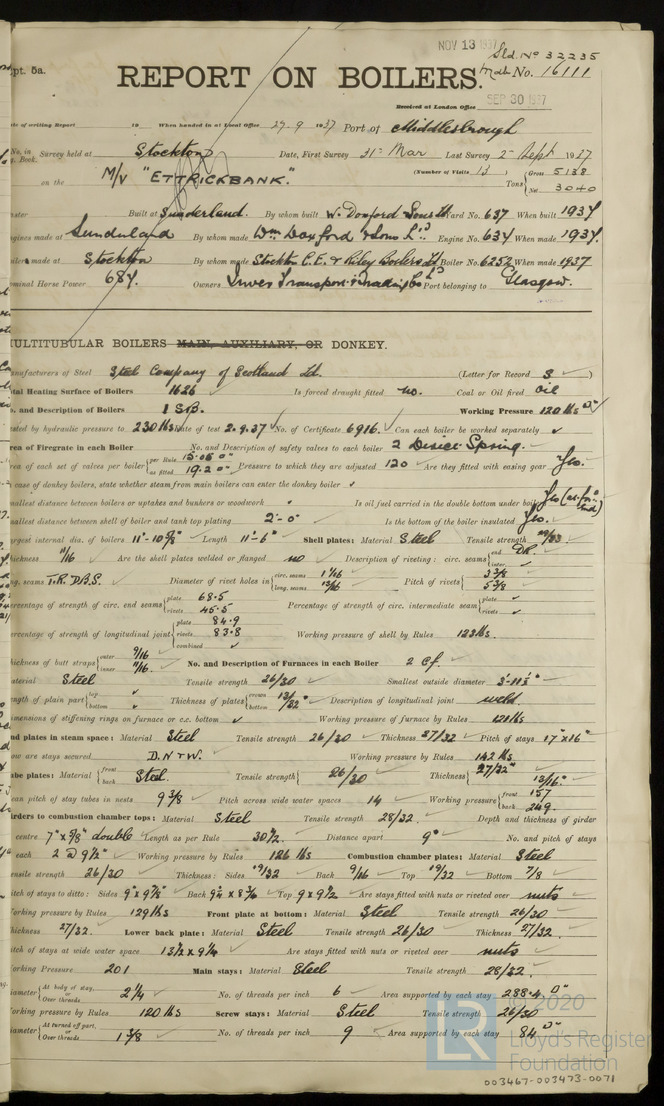 NOV 13 1937
Sld. No 32235
Rpt. 5a.
Mdb. No. 16111
REPORT ON BOILERS.
Received at London Office SEP 30 1937
Date of writing Report 19 When handed in at Local Office 29.9 1937 Port of Middlesbrough
No. in Reg. Book. Survey held at Stockton Date, First Survey 31st Mar Last Survey 2nd Sept 1937
on the M/V "ETTRICKBANK." (Number of Visits 13 ) Tons Gross 5138 Net 3040
Built at Sunderland. By whom built W. Doxford & Sons Ld Yard No. 637 When built 1937
Engines made at Sunderland By whom made Wm Doxford & Sons Ld. Engine No. 634 When made 1937.
Boilers made at Stockton By whom made Stockton C.E. & Riley Boilers Ld Boiler No. 6252 When made 1937
Nominal Horse Power 687. Owners Inver Transport & Trading Co Ld Port belonging to Glasgow.
MULTITUBULAR BOILERS MAIN, AUXILIARY, OR DONKEY.
Manufacturers of Steel Steel Company of Scotland Ld. (Letter for Record S )
Total Heating Surface of Boilers 1626 Is forced draught fitted no. Coal or Oil fired Oil
No. and Description of Boilers 1 S.B. Working Pressure 120 lbs
Tested by hydraulic pressure to 230 lbs Date of test 2.9.37 No. of Certificate 6916. Can each boiler be worked separately
Area of Firegrate in each Boiler No. and Description of safety valves to each boiler 2 Direct Spring.
Area of each set of valves per boiler per Rule 15.06 as fitted 19.20 Pressure to which they are adjusted 120 Are they fitted with easing gear Yes.
In case of donkey boilers, state whether steam from main boilers can enter the donkey boiler
Smallest distance between boilers or uptakes and bunkers or woodwork Is oil fuel carried in the double bottom under boilers Yes
Smallest distance between shell of boiler and tank top plating 2'-0" Is the bottom of the boiler insulated Yes.
Largest internal dia. of boilers 11'-10 5/8" Length 11'-6" Shell plates: Material Steel Tensile strength 29/33
Thickness 11/16 Are the shell plates welded or flanged no Description of riveting: circ. seams end DR. inter.
long. seams T.R. D.B.S. Diameter of rivet holes in circ. seams 1 1/16 long. seams 13/16 Pitch of rivets 3 3/8 5 3/8
Percentage of strength of circ. end seams plate 68.5 rivets 45.5 Percentage of strength of circ. intermediate seam plate rivets
Percentage of strength of longitudinal joint plate 84.9 rivets 83.8 combined Working pressure of shell by Rules 123 lbs.
Thickness of butt straps outer 9/16 inner 11/16. No. and Description of Furnaces in each Boiler 2 cf.
Material Steel Tensile strength 26/30 Smallest outside diameter
Length of plain part top bottom Thickness of plates crown bottom 13/32" Description of longitudinal joint weld
Dimensions of stiffening rings on furnace or c.c. bottom Working pressure of furnace by Rules 121 lbs
End plates in steam space: Material Steel Tensile strength 26/30 Thickness 27/32 Pitch of stays 17" x 16"
How are stays secured D.N & W. Working pressure by Rules 142 lbs
Tube plates: Material front back Steel. Tensile strength 26/30 Thickness 27/32" 13/16"
Mean pitch of stay tubes in nests 9 3/8 Pitch across wide water spaces 14 Working pressure front 157 back 249.
Girders to combustion chamber tops: Material Steel Tensile strength 28/32 Depth and thickness of girder
at centre 7" x 5/8" double Length as per Rule 30 1/2 Distance apart 9" No. and pitch of stays
in each 2 @ 9 1/2" Working pressure by Rules 126 lbs Combustion chamber plates: Material Steel
Tensile strength 26/30 Thickness: Sides 19/32 Back 9/16 Top 19/32 Bottom 7/8
Pitch of stays to ditto: Sides 9" x 9 7/8" Back Top 9 x 9 1/2 Are stays fitted with nuts or riveted over nuts
Working pressure by Rules 129 lbs Front plate at bottom: Material Steel Tensile strength 26/30
Thickness 27/32. Lower back plate: Material Steel Tensile strength 26/30 Thickness 27/32.
Pitch of stays at wide water space 13 1/2 x 9 1/4 Are stays fitted with nuts or riveted over nuts
Working Pressure 201 Main stays: Material Steel Tensile strength 28/32.
Diameter At body of stay, or Over threads 2 1/4 No. of threads per inch 6 Area supported by each stay 288.4
Working pressure by Rules 120 lbs Screw stays: Material Steel Tensile strength 26/30
Diameter At turned off part, or Over threads 1 3/8 No. of threads per inch 9 Area supported by each stay 84
© 2020
LR Lloyd's Register
Foundation
003467-003473-0071